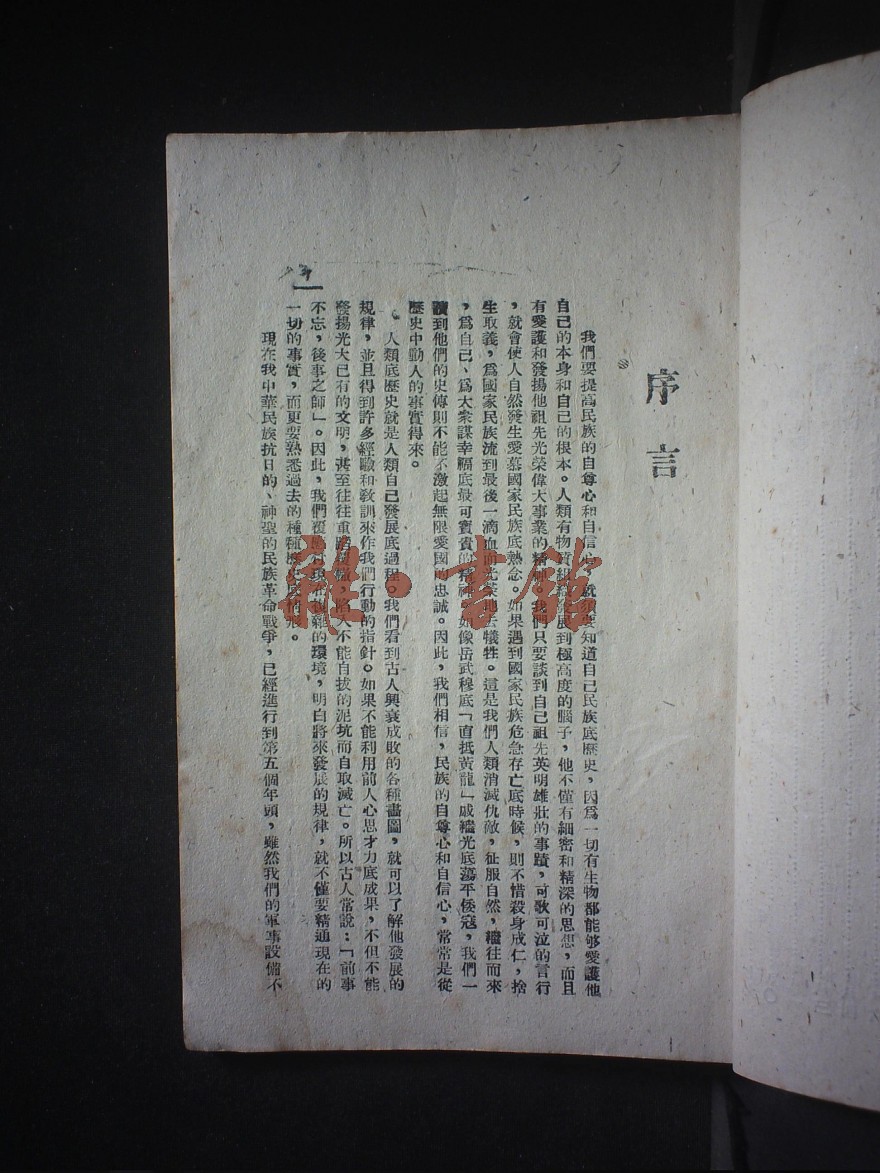 序言
我們要提高民族的自尊心和自信心，就須要知道自己民族底歷史，因爲一切有生物都能够愛護他
自己的本身和自己的根本。人類有物質組織發展到極高度的腦子，他不僅有細密和精深的思想，而且
有愛護和發揚他祖先光榮偉大事業的精神。我們只要談到自己祖先英明雄壯的事蹟，可歌可泣的言行
，就會使人自然發生愛慕國家民族底熱念。如果遇到國家民族危急存亡底時候，則不惜殺身成仁，捨
生取義，爲國家民族流到最後一滴血而光榮地去犧牲。這是我們人類消滅仇敵，征服自然，繼往而來
，爲自己、爲大衆謀幸福底最可寶貴的精神。如像岳武穆底「直抵黃龍」戚繼光底蕩平倭寇，我們一
讀到他們的史傳則不能不激起無限愛國的忠誠。因此，我們相信，民族的自尊心和自信心，常常是從
歷史中動人的事實得來。
人類底歷史就是人類自己發展底過程。我們看到古人興衰成敗的各種畫圖，就可以了解他發展的
規律，並且得到許多經驗和教訓來作我們行動的指針。如果不能利用前人心思才力底成果，不但不能
發揚光大已有的文明，甚至往往重蹈覆轍，陷入不能自拔的泥坑而自取滅亡。所以古人常說：「前事
不忘，後事之師」。因此，我們應付現在艱難的環境，明白將來發展的規律，就不僅要精通現在的
一切的事實，而更要熟悉過去的種種歷史底情形。
現在我中華民族抗日的、神聖的民族革命戰爭，已經進行到第五個年頭，雖然我們的軍事設備不
一
雒·吉館